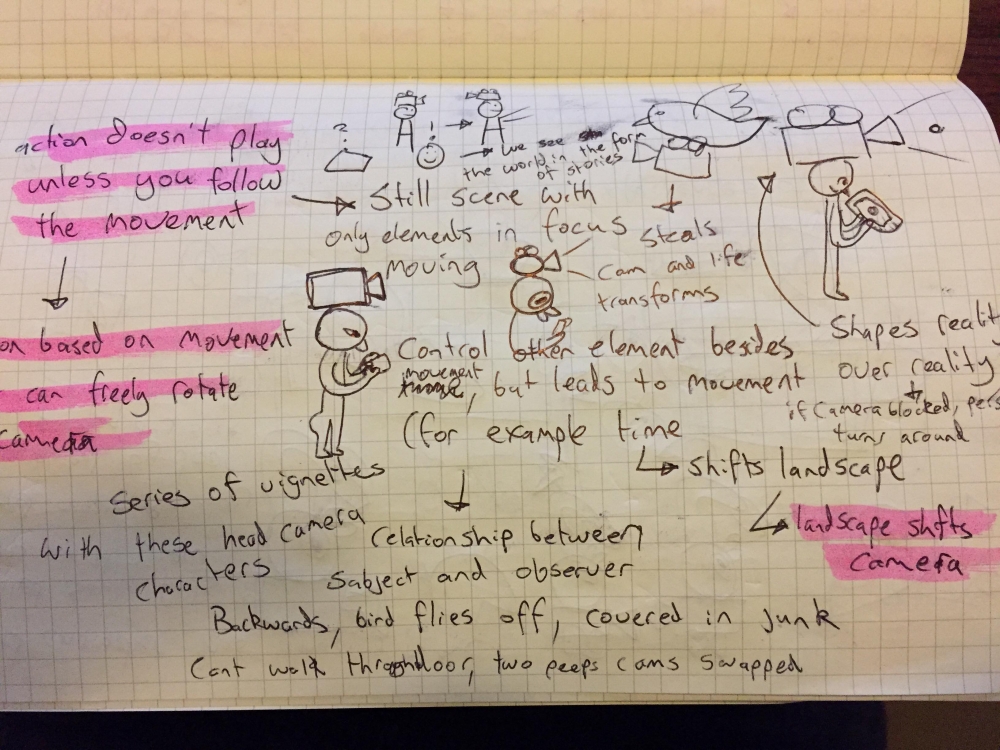 action doesn't play
unless you follow
the movement
on based on movement
can freely rotate
camera
?
!
we see the
the world in the form
of stories
Still scene with
only elements in focus
moving
Steals
Cam and life
transforms
Control other element besides
movement, but leads to movement
(for example time
shifts landscape
landscape shfts
camera
Shapes realit
over reality
if camera blocked, pers
turns around
Series of vignettes
with these head camera
characters
relationship between
Subject and observer
Backwards, bird flies off, covered in junk
Cant walk through door, two peeps cams swapped